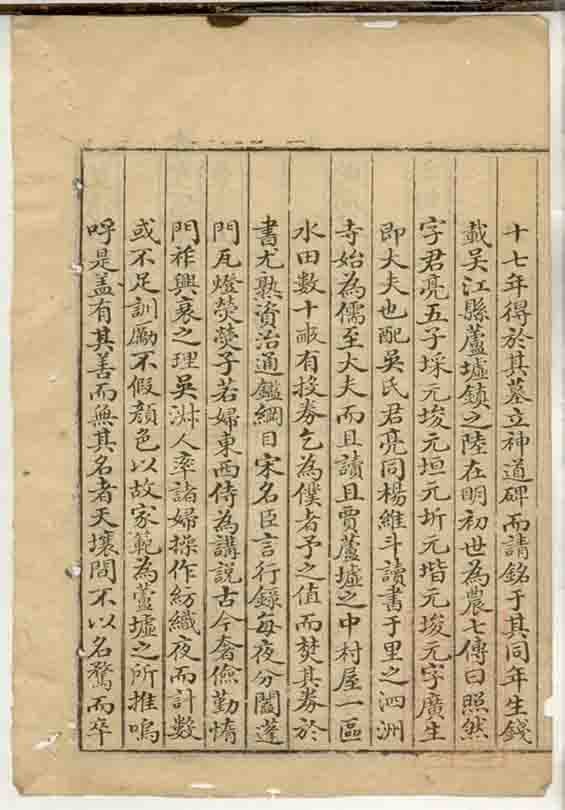 十七年得於其墓立神道碑而請銘于其同年生錢
載吳江縣蘆墟鎮之陸在明初世為農七傳曰照然
字君亮五子埰元埈元垣元圻元堦元埈元字廣生
即大夫也配吳氏君亮同楊維斗讀書于里之泗洲
寺始為儒至大夫而且讀且賈蘆墟之中村屋一區
水田數十畝有投券乞為僕者予之值而焚其券於
書尤熟資治通鑑綱目宋名臣言行錄每夜分闔蓬
門瓦燈熒熒子若婦東西侍為講說古今奢儉勤惰
門祚興衰之理吳淋人率諸婦操作紡織夜而計數
或不足訓勵不假顏色以故家範為蘆墟之所推嗚
呼是盖有其善而無其名者天壤間不以名騖而卒